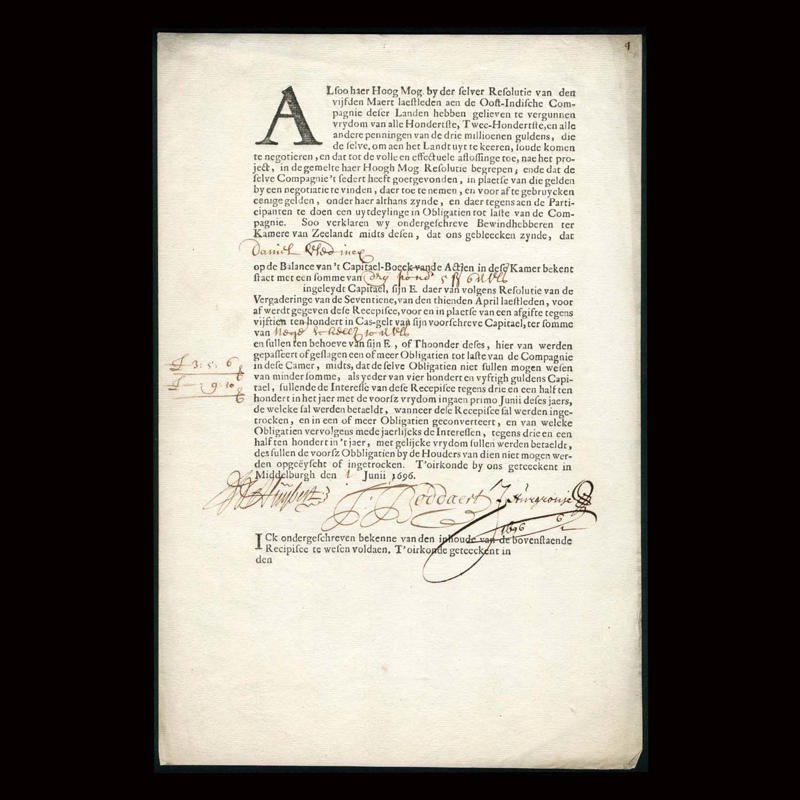 ALsoo haer Hoog Mog. by der selver Resolutie van den
vijfden Maert laestleden aen de Oost-Indische Com-
pagnie deser Landen hebben gelieven te vergunnen
vrydom van alle Hondertste, Twee-Hondertste, en alle
andere penningen van de drie millioenen guldens, die
de selve, om aen het Landt uyt te keeren, soude komen
te negotieren, en dat tot de volle en effectuele aflossinge toe, nae het pro-
ject, in de gemelte haer Hoogh Mog. Resolutie begrepen; ende dat de
selve Compagnie 't sedert heeft goetgevonden, in plaetse van die gelden
by een negotiatie te vinden, daer toe te nemen, en voor af te gebruycken
eenige gelden, onder haer althans zynde, en daer tegens aen de Parti-
cipanten te doen een uytdeylinge in Obligatien tot laste van de Com-
pagnie. Soo verklaren wy ondergeschreve Bewindhebberen ter
Kamere van Zeelandt midts desen, dat ons gebleecken zynde, dat
Daniel
op de Balance van 't Capitael-Boeck vande Actien in dese Kamer bekent
staet met een somme van
ingeleydt Capitael, sijn E. daer van volgens Resolutie van de
Vergaderinge van de Seventiene, van den thienden April laestleden, voor
af werdt gegeven dese Recepisse, voor en in plaetse van een afgifte tegens
vijftien ten hondert in Cas-gelt van sijn voorschreve Capitael, ter somme
van
en sullen ten behoeve van sijn E, of Thoonder deses, hier van werden
gepasseert of geslagen een of meer Obligatien tot laste van de Compagnie
in dese Camer, midts, dat de selve Obligatien niet sullen mogen wesen
van minder somme, als yeder van vier hondert en vyftigh guldens Capi-
tael, sullende de Interesse van dese Recepisse tegens drie en een half ten
hondert in het jaer met de voorsz vrydom ingaen primo Junii deses jaers,
de welcke sal werden betaeldt, wanneer dese Recepisse sal werden inge-
trocken, en in een of meer Obligatien geconverteert, en van welcke
Obligatien vervolgens mede jaerlijcks de Interessen, tegens drie en een
half ten hondert in 't jaer, met gelijcke vrydom sullen werden betaeldt,
des sullen de voorsz Obbligatien by de Houders van dien niet mogen wer-
den opgeëyscht of ingetrocken. T'oirkonde by ons geteeckent in
Middelburgh den 1 Junii 1696.
3: 5: 6
—: 9: 10
J. Boddaert
1696
ICk ondergeschreven bekenne van den inhoude van de bovenstaende
Recipisee te wesen voldaen. T'oirkonde geteeckent in
den